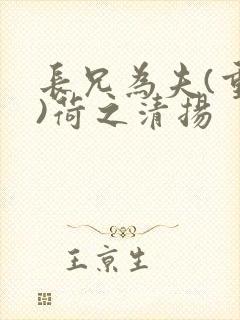 長兄為夫(重
)荷之清揚
王京生